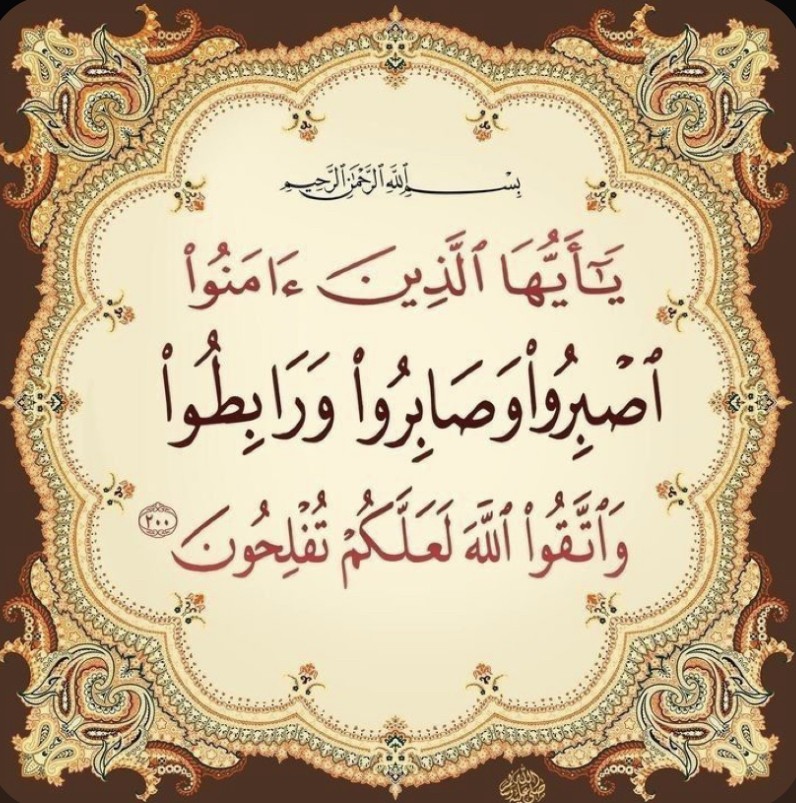 بِسْمِ ٱللَّهِ ٱلرَّحْمَٰنِ ٱلرَّحِيمِ
يَـٰٓأَيُّهَا ٱلَّذِينَ ءَامَنُوا۟
ٱصْبِرُوا۟ وَصَابِرُوا۟ وَرَابِطُوا۟
وَٱتَّقُوا۟ ٱللَّهَ لَعَلَّكُمْ تُفْلِحُونَ ٢٠٠